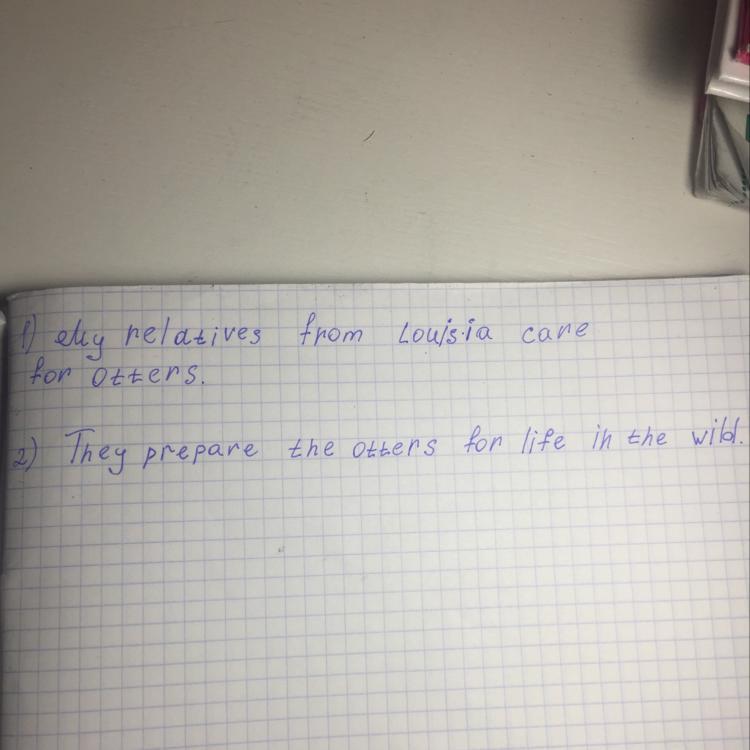 1) My relatives from Louisia care
for otters.
2) They prepare the otters for life in the wild.